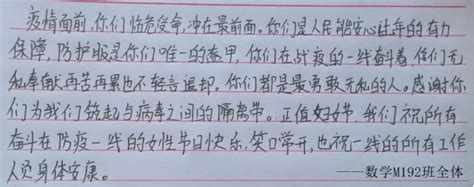 疫情面前，你们临危受命，冲在最前面。你们是人民能安心过年的有力
保障，防护服是你们唯一的盔甲，你们在战疫的一线奋斗着，你们无
私奉献再苦再累也不轻言退却，你们都是最勇敢无私的人。感谢你
们为我们筑起与病毒之间的隔离带。正值妇女节，我们祝所有
奋斗在防疫一线的女性节日快乐，笑口常开，也祝一线的所有工作
人员身体安康。
——数学M192班全体